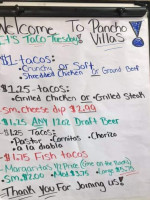 Welcome To Pancho
Villas
It's Taco Tuesday!
$1-tacos:
• Crunchy or Soft
• Shredded Chicken or Ground Beef
$1.25 - tacos:
• Grilled Chicken or • Grilled Steak
Sm. cheese dip $2.99
$1.25 ANY 12oz Draft Beer
$1.25 Tacos:
• Pastor • Carnitas • Chorizo
• a la diabla
$1.75 Fish tacos
Margaritas ½ Price (on the Rocks)
Sm. $2.00 - Med $3.75 - Large $5.75
Thank You For Joining Us!